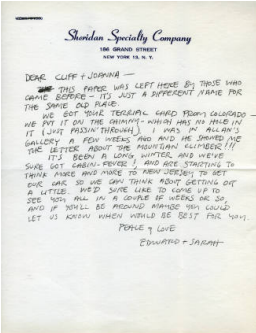 Sheridan Specialty Company
166 GRAND STREET
NEW YORK 13, N. Y.
DEAR CLIFF & JOANNA -
THIS PAPER WAS LEFT HERE BY THOSE WHO
CAME BEFORE - IT'S JUST A DIFFERENT NAME FOR
THE SAME OLD PLACE.
WE GOT YOUR TERRIAL CARD FROM COLORADO -
WE PUT IT ON THE CHIMNY - WHICH HAS NO HOLE IN
IT (JUST PASSIN' THROUGH). I WAS IN ALLAN'S
GALLERY A FEW WEEKS AGO AND HE SHOWED ME
THE LETTER ABOUT THE MOUNTAIN CLIMBER!!!
IT'S BEEN A LONG WINTER AND WE'VE
SURE GOT CABIN-FEVER!, AND ARE STARTING TO
THINK MORE AND MORE TO NEW JERSEY TO GET
OUR CAR SO WE CAN THINK ABOUT GETTING OUT
A LITTLE. WE'D SURE LIKE TO COME UP TO
SEE YOU ALL IN A COUPLE OF WEEKS OR SO,
AND IF YOU'LL BE AROUND MAYBE YOU COULD
LET US KNOW WHEN WOULD BE BEST FOR YOU.
PEACE & LOVE
EDWARD + SARAH